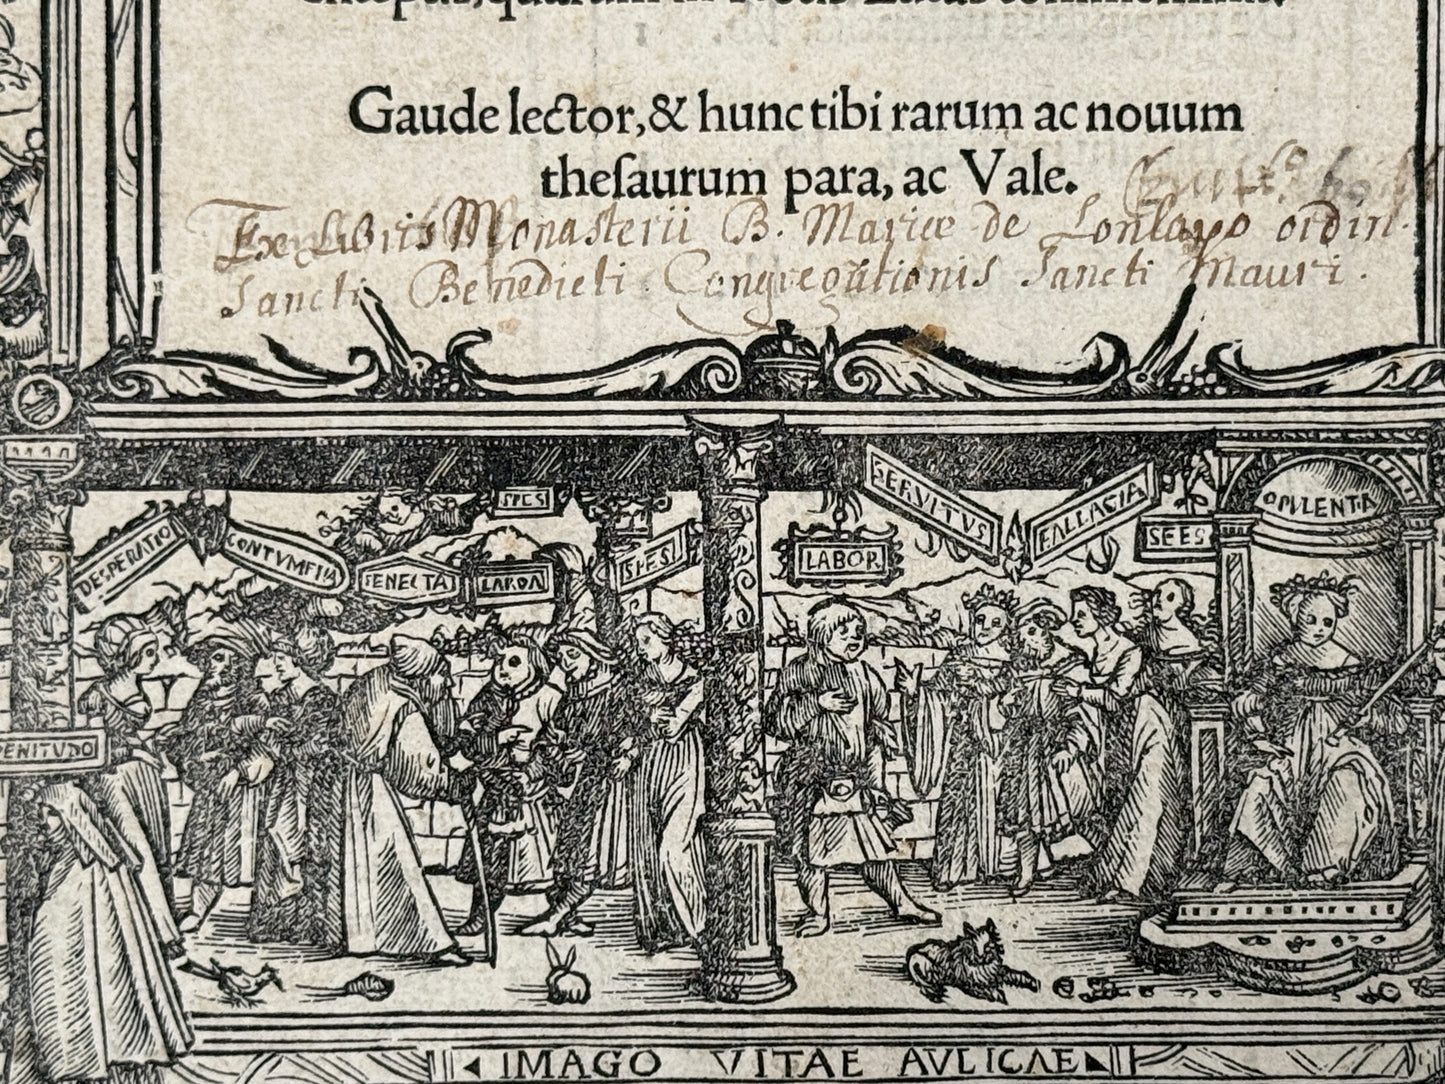 Gaude lector, & hunc tibi rarum ac nouum
theſaurum para, ac Vale.
Ex Libris Monasterii B. Mariæ de Lonlayo ordin.
Sancti Benedicti Congregationis Sancti Mauri.
SPES
SERVITUS
FALLACIA
OPVLENTA
DESPERATIO
CONTVMELIA
SENECTA
SPES
LABOR
SEES
PENITVDO
IMAGO VITAE AVLICAE